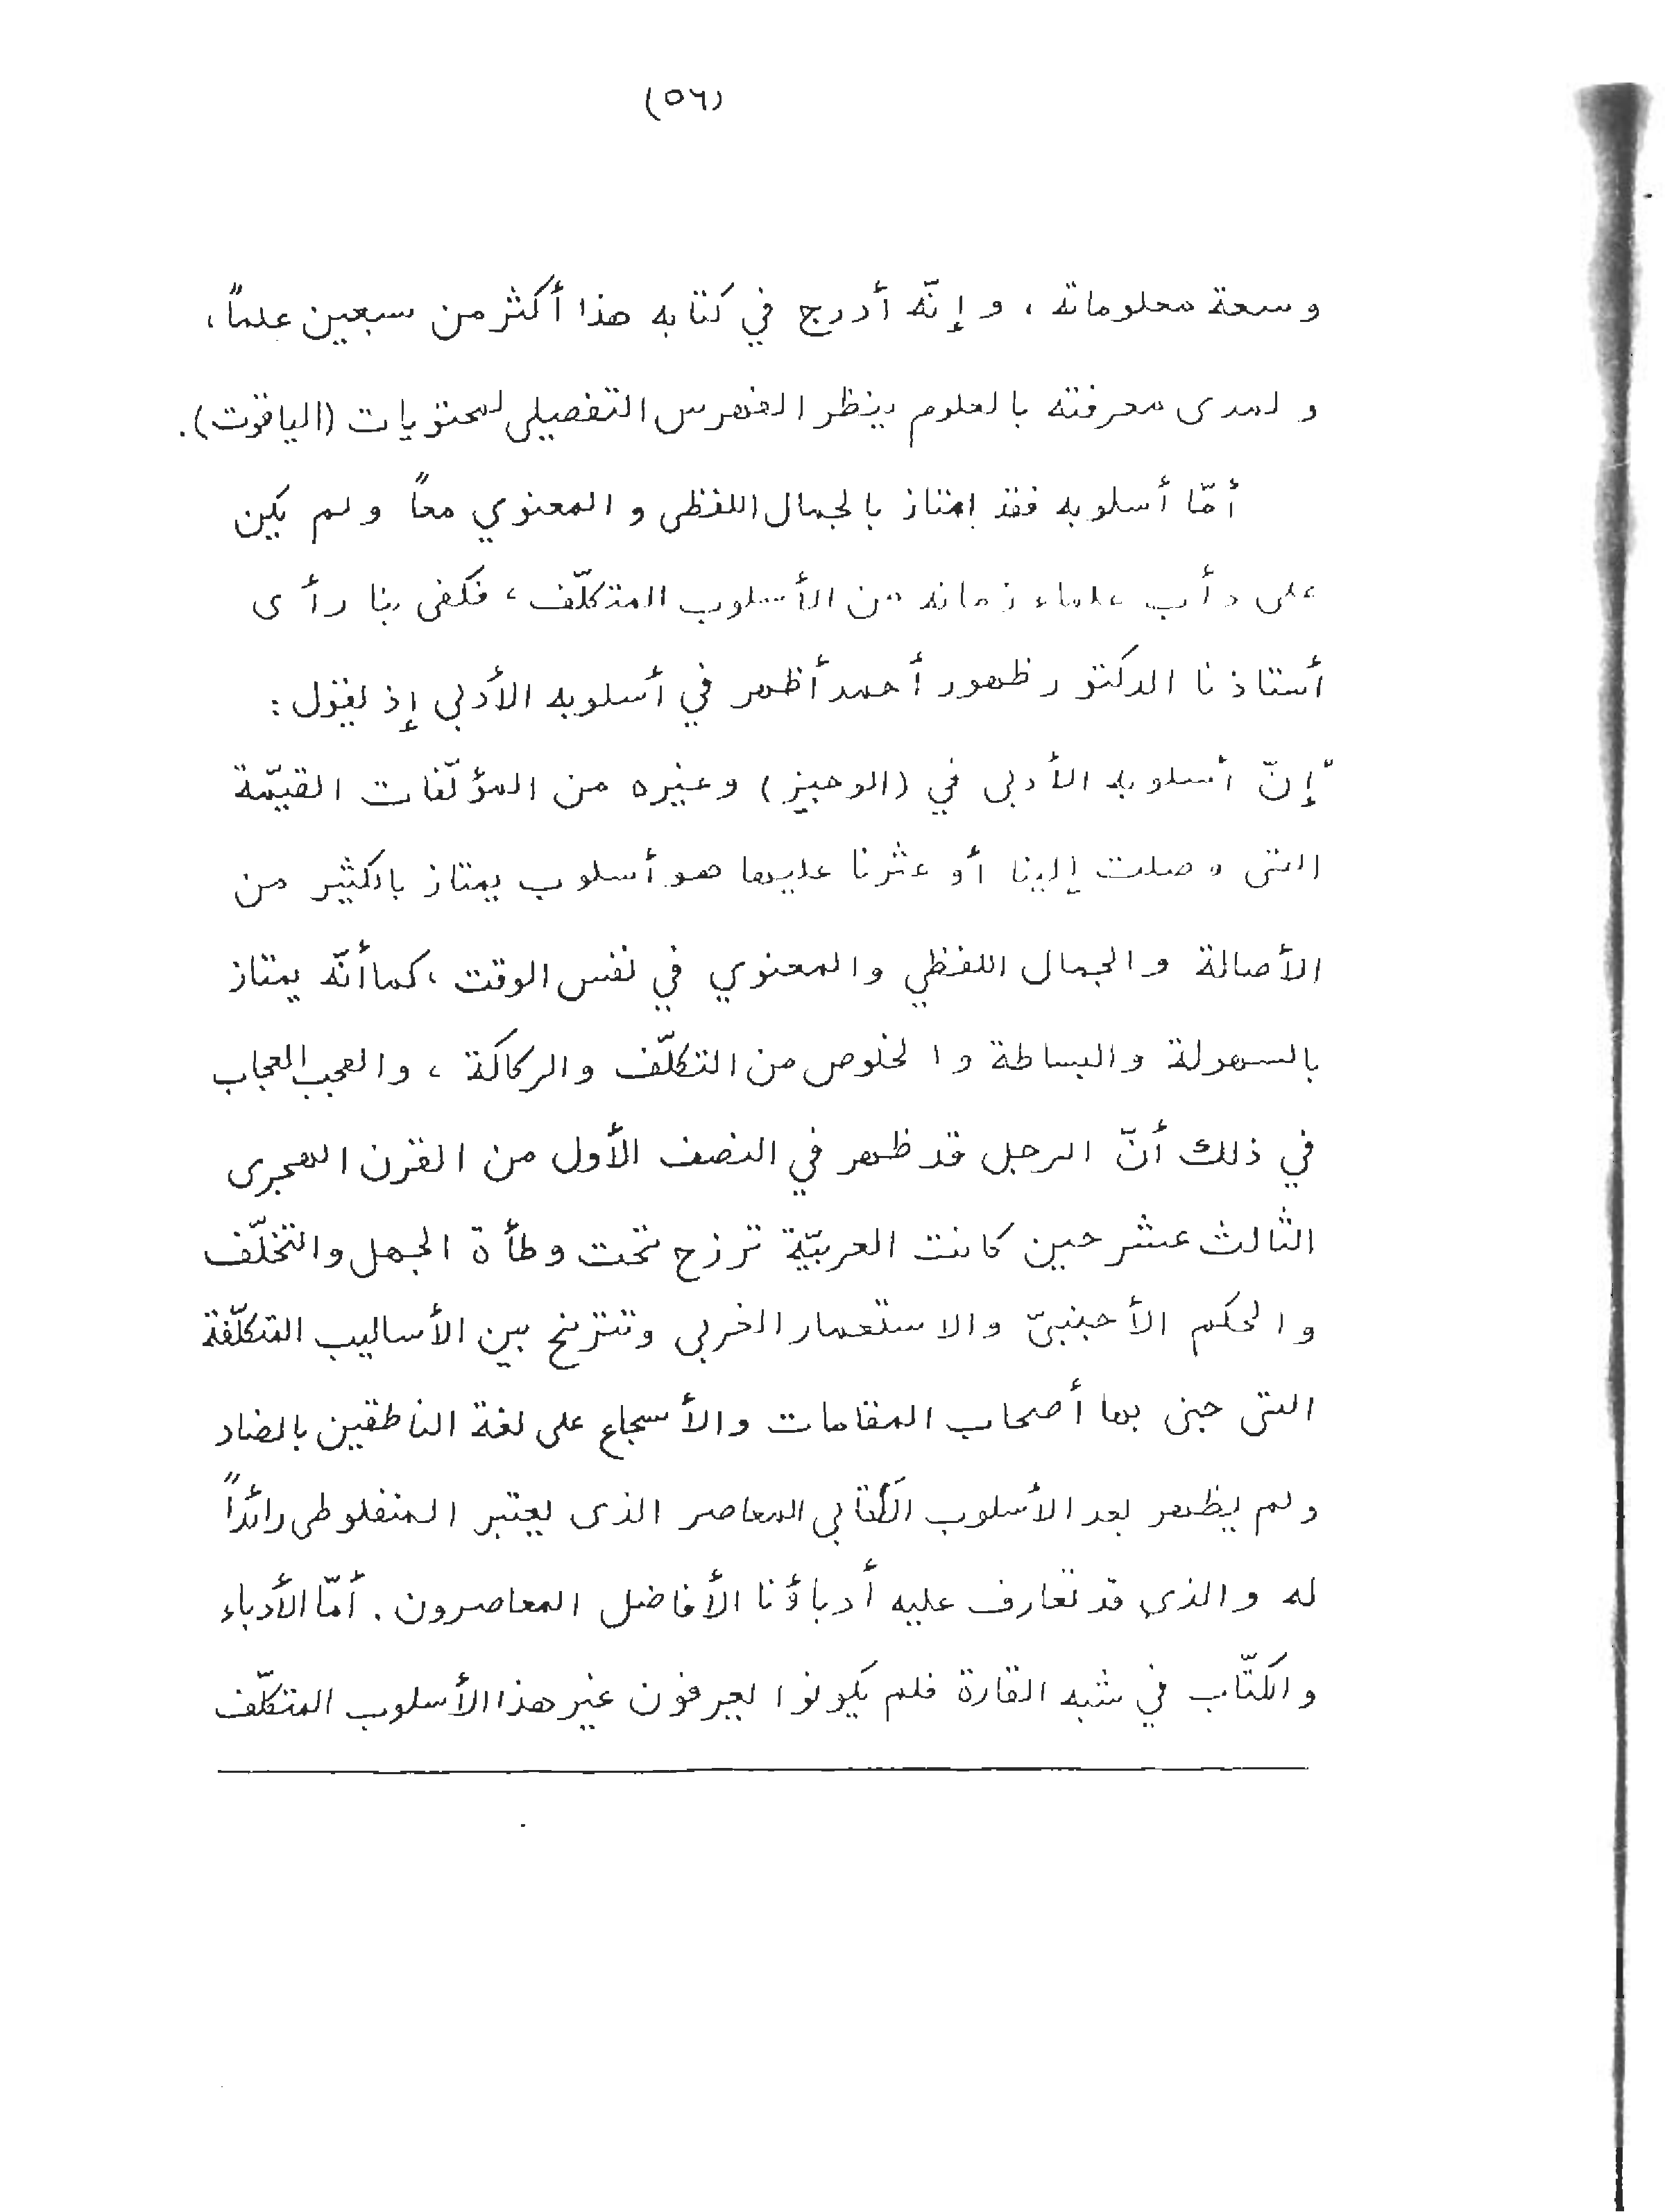 (٥٦)
وسعة معلوماته ، وإنّه أدرج في كتابه هذا أكثر من سبعين علماً ،
ولمدى معرفته بالعلوم ينظر الفهرس التفصيلى لمحتويات (الياقوت).
أمّا أسلوبه فقد إمتاز بالجمال اللفظى والمعنوي معاً ولم يكن
على دأب علماء زمانه من الأسلوب المتكلّف ، فكفى بنا رأى
أستاذنا الدكتور ظهور أحمد أظهر في أسلوبه الأدبى إذ يقول :
"إنّ أسلوبه الأدبى في (الوجيز) وغيره من المؤلّفات القيّمة
التى وصلت إلينا أو عثرنا عليها هو أسلوب يمتاز بالكثير من
الأصالة والجمال اللفظي والمعنوي في نفس الوقت ، كما أنّه يمتاز
بالسهولة والبساطة والخلوص من التكلّف والركاكة ، والعجب العجاب
في ذلك أنّ الرجل قد ظهر في النصف الأول من القرن الهجرى
الثالث عشر حين كانت العربيّة ترزح تحت وطأة الجهل والتخلّف
والحكم الأجنبيّ والاستعمار الغربى وتترنح بين الأساليب المتكلّفة
التى جنى بها أصحاب المقامات والأسجاع على لغة الناطقين بالضاد
ولم يظهر بعد الأسلوب الكتابى المعاصر الذى يعتبر المنفلوطى رائداً
له والذى قد تعارف عليه أدباؤنا الأفاضل المعاصرون . أمّا الأدباء
والكتّاب في شبه القارة فلم يكونوا يعرفون غير هذا الأسلوب المتكلّف